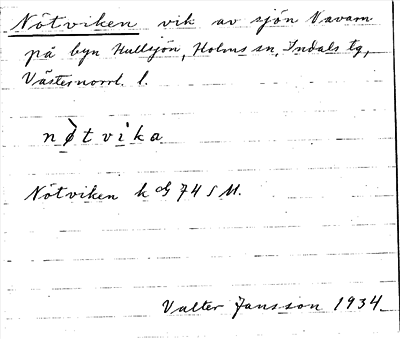 Nötviken vik av sjön Vavarn
på byn Hullsjön, Holms sn, Indals tg,
Västernorrl. l.
nòtvika
Nötviken k 74 S M.
Valter Jansson 1934